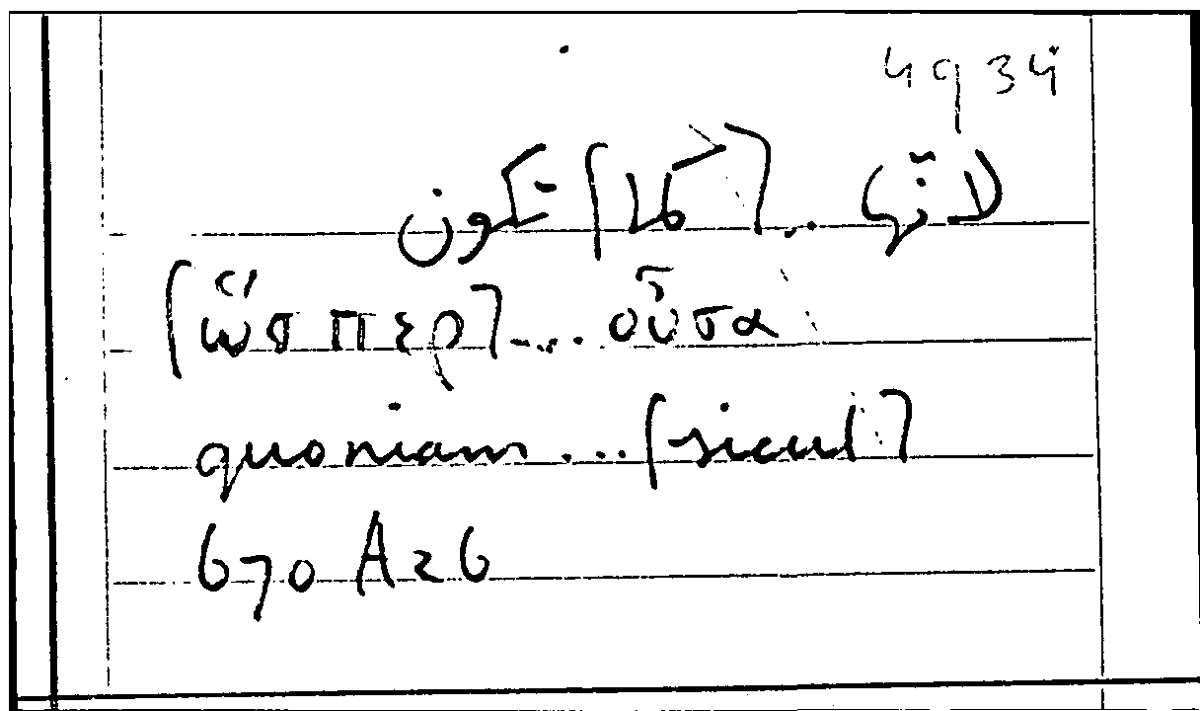 4934
لانّها ... [كما] تكون
[ὥσπερ] ... οὖσα
quoniam ... [sicut]
670 A26